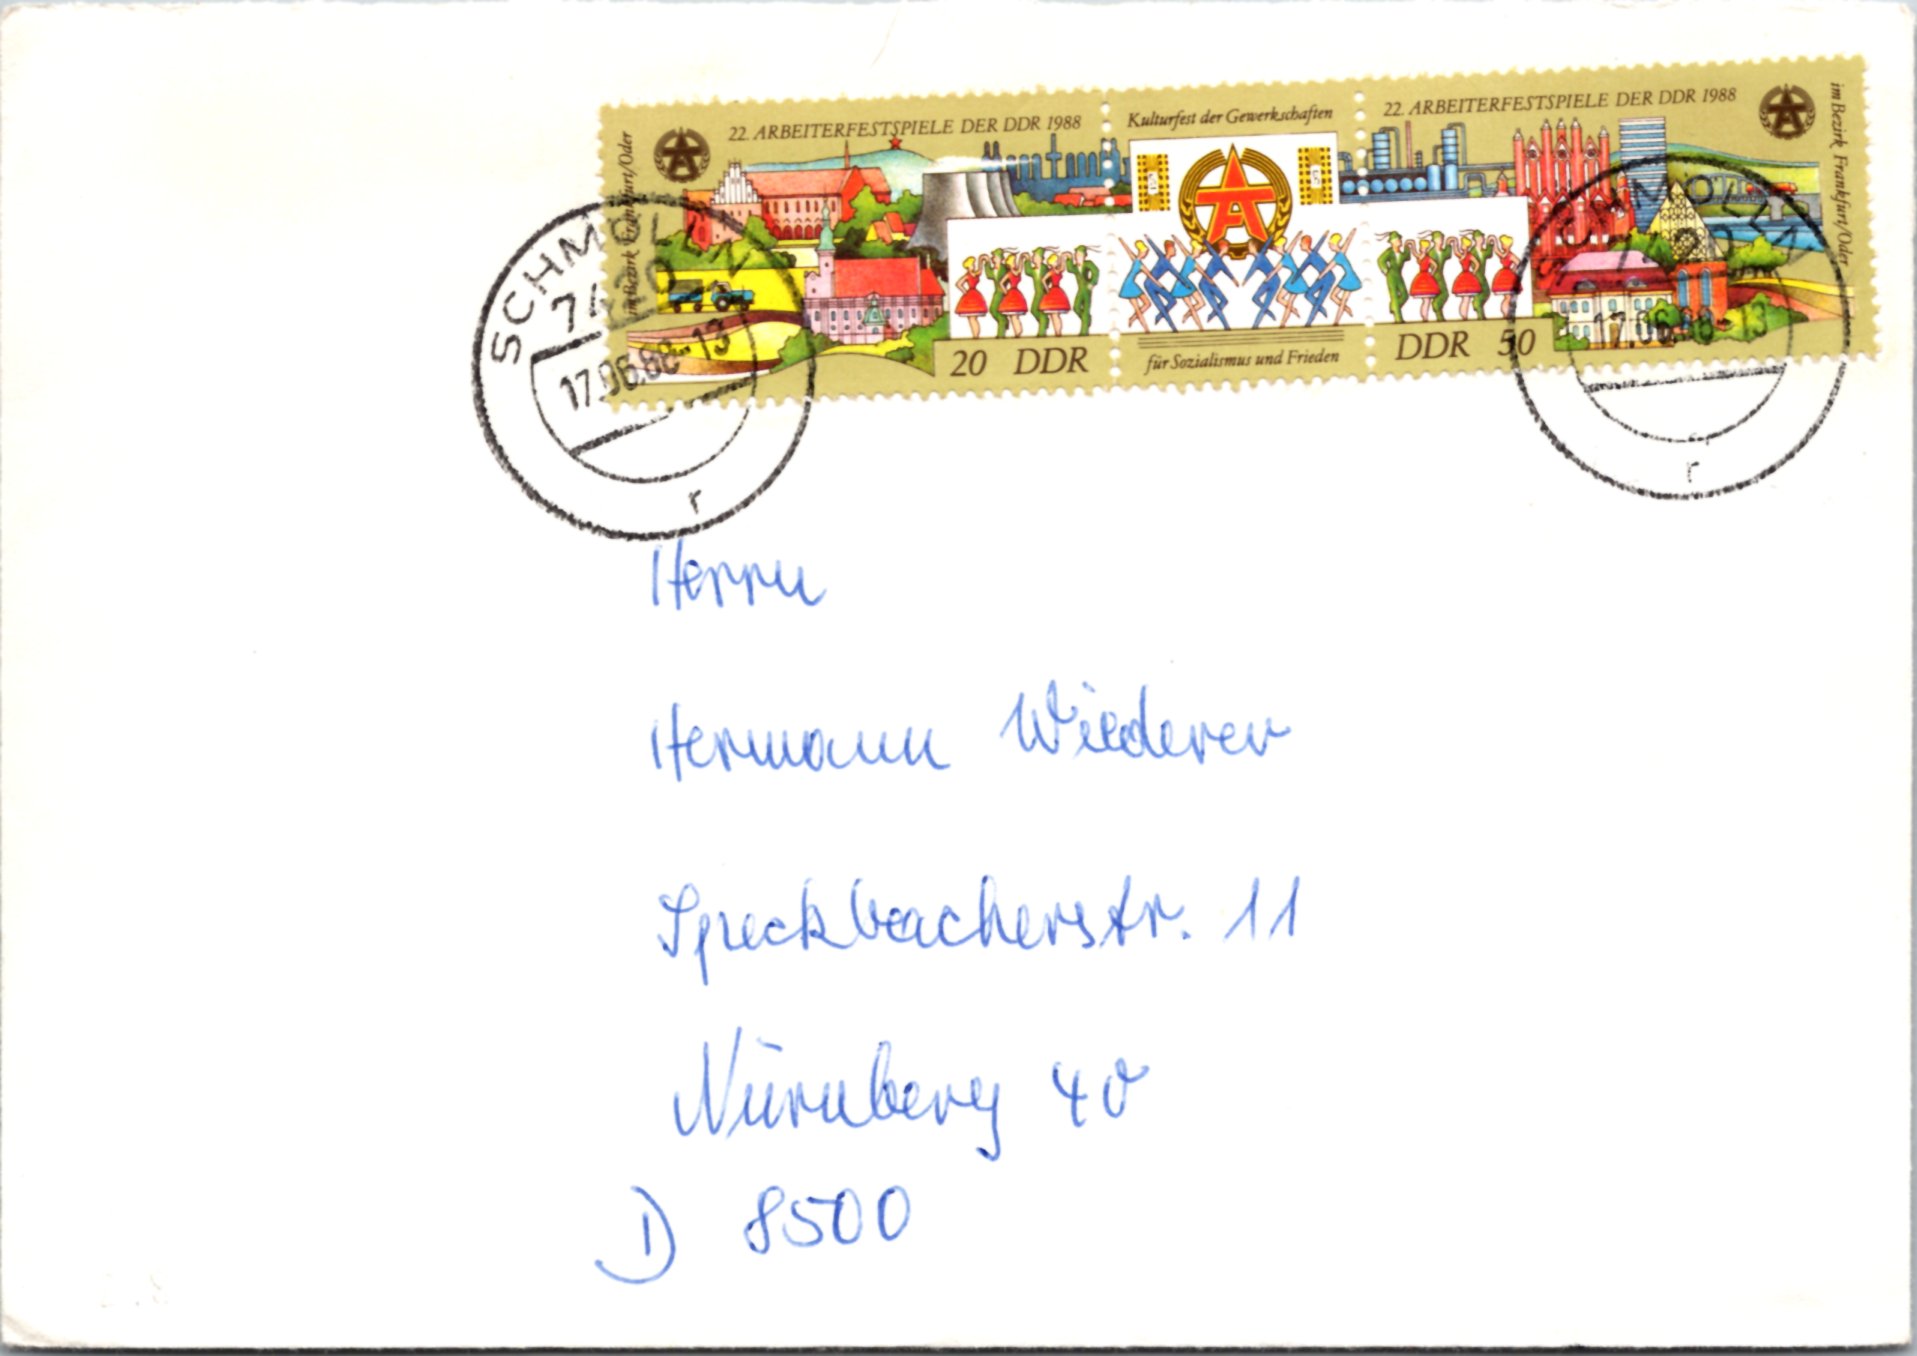 22. ARBEITERFESTSPIELE DER DDR 1988
im Bezirk Frankfurt/Oder
20 DDR
Kulturfest der Gewerkschaften
für Sozialismus und Frieden
22. ARBEITERFESTSPIELE DER DDR 1988
im Bezirk Frankfurt/Oder
DDR 50
SCHMÖLLN
7420
17.06.88-13
r
SCHMÖLLN
7420
17.06.88-13
r
Herrn
Hermann Wiederer
Speckbacherstr. 11
Nürnberg 40
D 8500